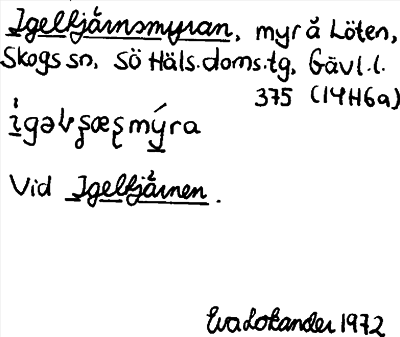 Igelkjärnsmyran, myr å Löten,
Skogs sn, Sö Häls.doms.tg, Gävl.l.
375 (14H6a)
Vid Igeltjärnen.
Eva Lokander 1972